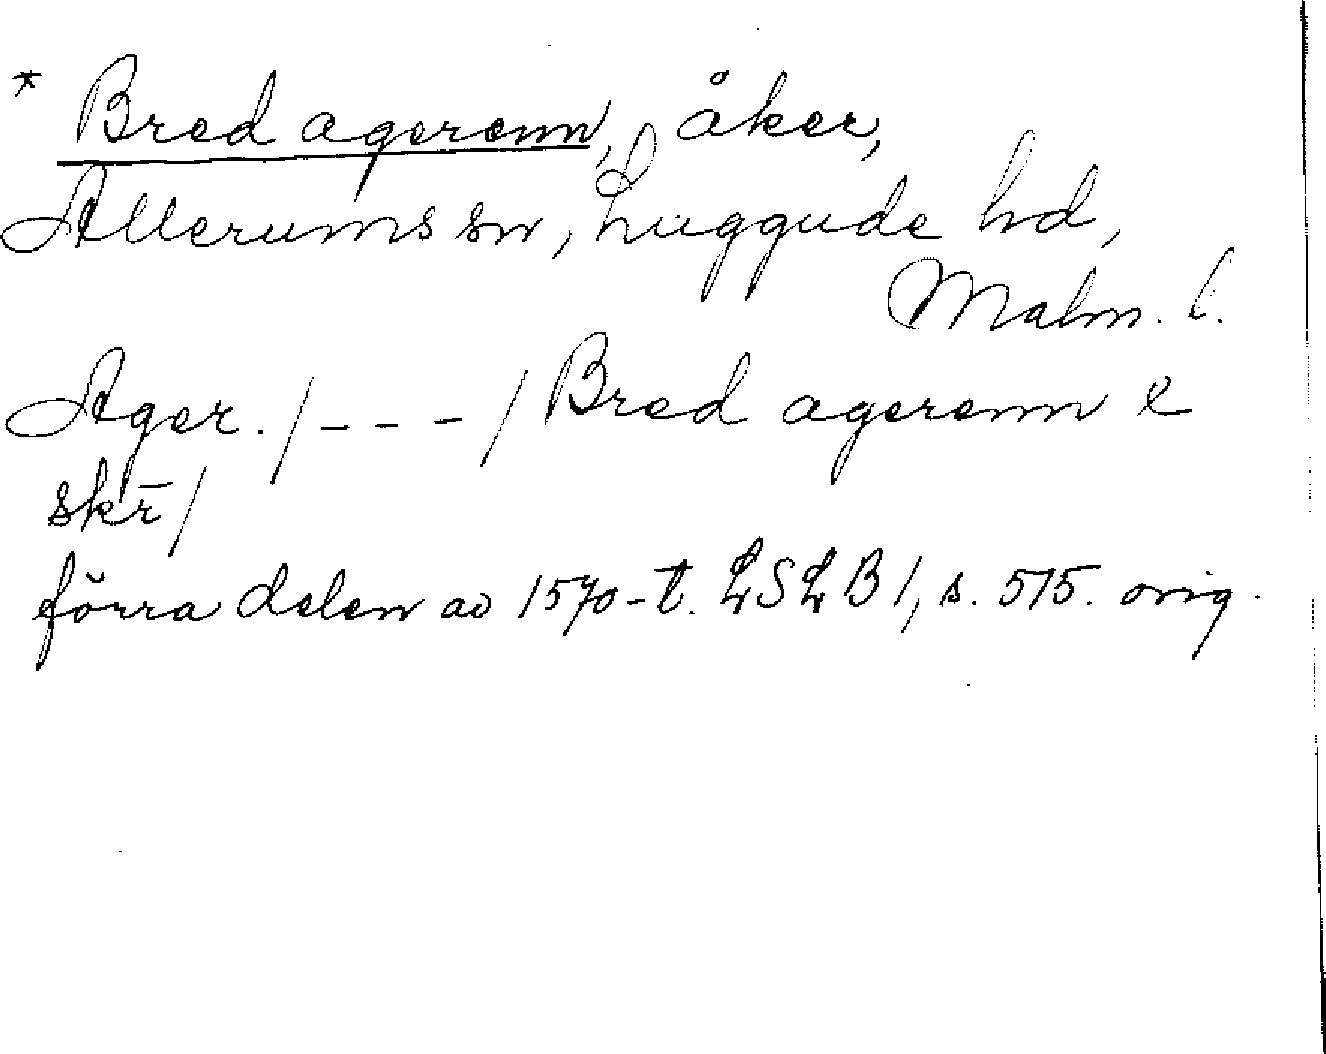 * Bred agerenn, åker,
Allerums sn, Luggude hd,
Malm. l.
Ager. /- - - / Bred agerenn e
skr̄ /
förra delen av 1570-t. LSLB 1, s. 575. orig.